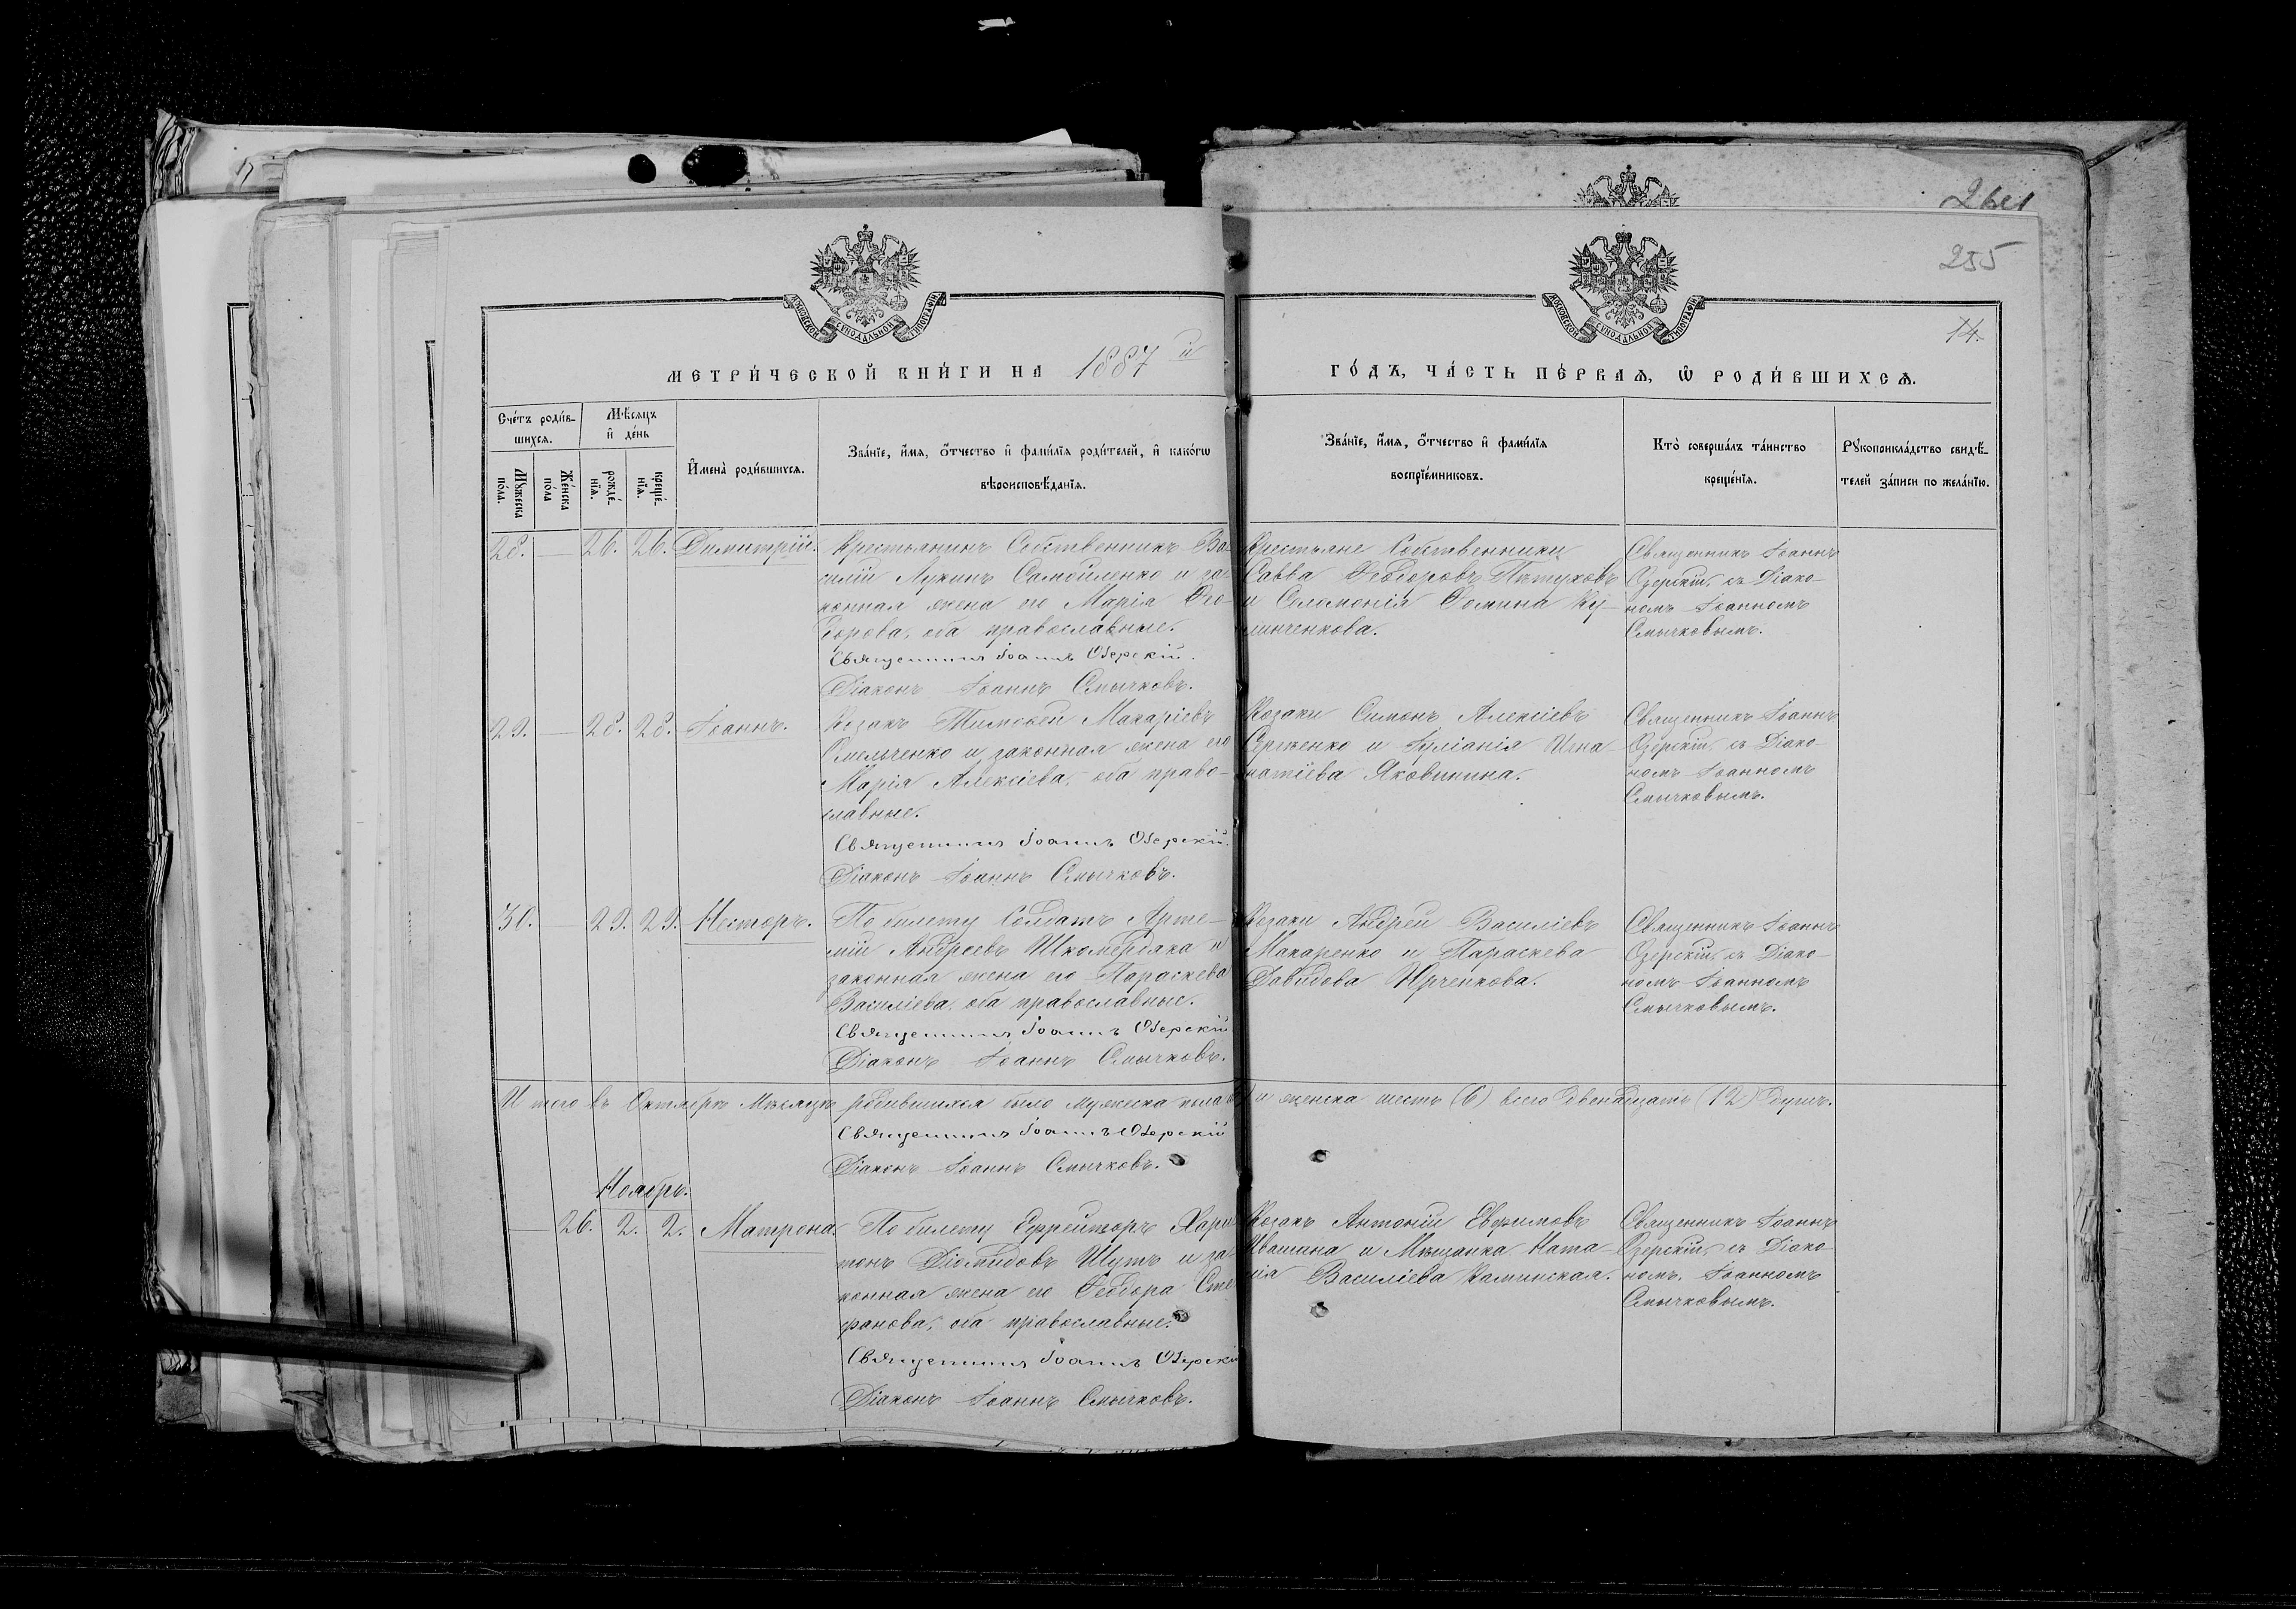 261
255
14.
МОСКОВСКОЙ СѴНОДАЛЬНОЙ ТИПОГРАФІИ
МОСКОВСКОЙ СѴНОДАЛЬНОЙ ТИПОГРАФІИ
МЕТРИ́ЧЕСКОЙ КНИ́ГИ НА 1887 й
ГО́ДЪ, ЧА́СТЬ ПЕ́РВАѦ, Ѡ҆ РОДИ́ВШИХСѦ.
Сче́тъ роди́в-
шихсѧ.
Мѣ́сѧцъ
и҆ де́нь
Мꙋ́жеска
по́ла.
Же́нска
по́ла
рожде́-
нїѧ.
креще́-
нїѧ.
И҆мена̀ роди́вшихсѧ.
Зва́нїе, и҆́мѧ, ѻ҆́тчество и҆ фами́лїѧ роди́телей, и҆ како́гѡ
вѣроисповѣ́данїѧ.
Зва́нїе, и҆́мѧ, ѻ҆́тчество и҆ фами́лїѧ
воспрїе́мниковъ.
Кто̀ соверша́лъ та́инство
креще́нїѧ.
Рꙋкоприкла́дство свидѣ́-
телей за́писи по жела́нїю.
28. — 26. 26. Димитрій.
Крестьянинъ Собственникъ Ва-
силій Лукинъ Самойленко и за-
конная жена его Марія Ѳео-
дорова, оба православные.
Священникъ Іоаннъ Озерскій.
Діаконъ Іоаннъ Смычковъ.
Крестьяне Собственники
Савва Ѳеодоровъ Пѣтуховъ
и Соломонія Ѳомина Ку-
линченкова.
Священникъ Іоаннъ
Озерскій, съ Діако-
номъ Іоанномъ
Смычковымъ.
29. — 28. 28. Іоаннъ.
Козакъ Тимоѳей Макаріевъ
Омельченко и законная жена его
Марія Алексіева, оба право-
славные.
Священникъ Іоаннъ Озерскій.
Діаконъ Іоаннъ Смычковъ.
Козаки Симонъ Алексіевъ
Сергіенко и Іуліанія Игна-
натіева Яковинина.
Священникъ Іоаннъ
Озерскій, съ Діако-
номъ Іоанномъ
Смычковымъ.
30. — 29. 29. Несторъ.
По билету Солдатъ Арте-
мій Андреевъ Шкомердяка и
законная жена его Параскева
Василіева, оба православные.
Священникъ Іоаннъ Озерскій
Діаконъ Іоаннъ Смычковъ.
Козаки Андрей Василіевъ
Макаренко и Параскева
Давидова Юрченкова.
Священникъ Іоаннъ
Озерскій, съ Діако-
номъ Іоанномъ
Смычковымъ.
И того въ Октябрѣ Мѣсяцѣ родившихся было мужеска пола (6) и женска шесть (6) всего двенадцать (12) душъ.
Священникъ Іоаннъ Озерскій
Діаконъ Іоаннъ Смычковъ.
Ноябрь.
— 26. 2. 2. Матрона.
По билету Ефрейторъ Хари-
тонъ Діомидовъ Шутъ и за-
конная жена его Ѳеодора Сте-
фанова, оба православные.
Священникъ Іоаннъ Озерскій
Діаконъ Іоаннъ Смычковъ.
Козакъ Антоній Евфимовъ
Ивашина и Мѣщанка Ната-
лія Василіева Каминская.
Священникъ Іоаннъ
Озерскій, съ Діако-
номъ, Іоанномъ
Смычковымъ.